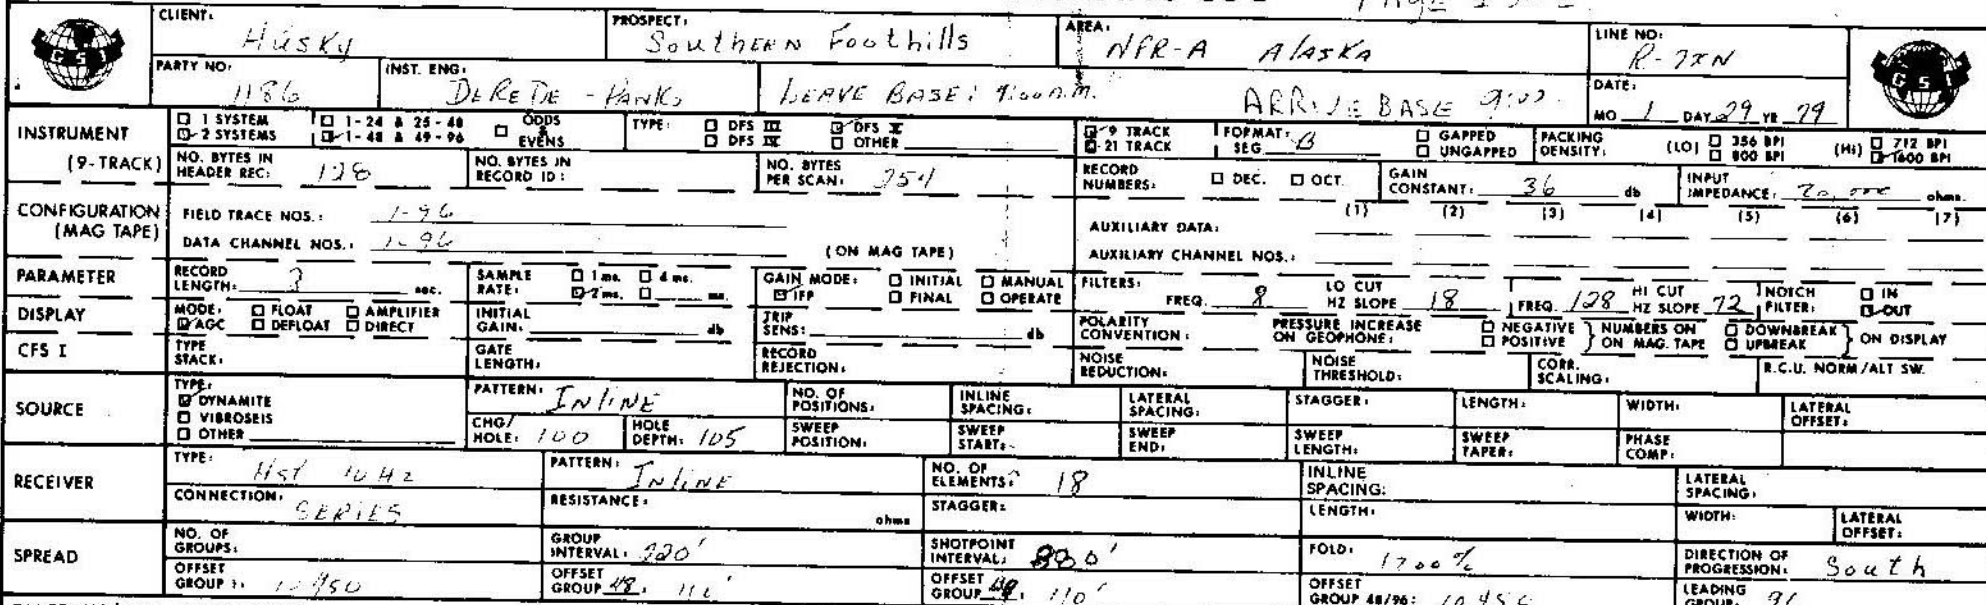 CLIENT: Husky PROSPECT: Southern Foothills AREA: NPR-A Alaska LINE NO: R-7XN
GSI GSI
PARTY NO: 1186 INST. ENG: LEAVE BASE: ARRIVE BASE 9:00 DATE: MO 1 DAY 29 YR 79
INSTRUMENT (9-TRACK)
1 SYSTEM 1-24 & 25-48 ODDS & EVENS TYPE: DFS III DFS V 9 TRACK FORMAT: B GAPPED PACKING DENSITY: (LO) 356 BPI (HI) 712 BPI
2 SYSTEMS 1-48 & 49-96 DFS IV OTHER 21 TRACK SEG UNGAPPED 800 BPI 1600 BPI
NO. BYTES IN HEADER REC: 128 NO. BYTES IN RECORD ID: NO. BYTES PER SCAN: 254 RECORD NUMBERS: DEC. OCT. GAIN CONSTANT: 36 db INPUT IMPEDANCE: ohms.
CONFIGURATION (MAG TAPE)
FIELD TRACE NOS.: 1-96 AUXILIARY DATA: (1) (2) (3) (4) (5) (6) (7)
DATA CHANNEL NOS.: 1-96 (ON MAG TAPE) AUXILIARY CHANNEL NOS.:
PARAMETER RECORD LENGTH: 3 sec. SAMPLE RATE: 1 ms. 4 ms. 2 ms. ms. GAIN MODE: INITIAL MANUAL IFP FINAL OPERATE FILTERS: FREQ. 8 LO CUT HZ SLOPE 18 FREQ. 128 HI CUT HZ SLOPE 72 NOTCH FILTER: IN OUT
DISPLAY MODE: FLOAT AMPLIFIER AGC DEFLOAT DIRECT INITIAL GAIN: db TRIP SENS: db POLARITY CONVENTION: PRESSURE INCREASE ON GEOPHONE: NEGATIVE POSITIVE NUMBERS ON ON MAG. TAPE DOWNBREAK UPBREAK ON DISPLAY
CFS I TYPE STACK: GATE LENGTH: RECORD REJECTION: NOISE REDUCTION: NOISE THRESHOLD: CORR. SCALING: R.C.U. NORM/ALT SW.
SOURCE TYPE: DYNAMITE VIBROSEIS OTHER
PATTERN: Inline NO. OF POSITIONS: INLINE SPACING: LATERAL SPACING: STAGGER: LENGTH: WIDTH: LATERAL OFFSET:
CHG/HOLE: 100 HOLE DEPTH: 105 SWEEP POSITION: SWEEP START: SWEEP END: SWEEP LENGTH: SWEEP TAPER: PHASE COMP:
RECEIVER TYPE: 10 Hz PATTERN: Inline NO. OF ELEMENTS: 18 INLINE SPACING: LATERAL SPACING:
CONNECTION: SERIES RESISTANCE: ohms STAGGER: LENGTH: WIDTH: LATERAL OFFSET:
SPREAD NO. OF GROUPS: GROUP INTERVAL: 220' SHOTPOINT INTERVAL: FOLD: 1200% DIRECTION OF PROGRESSION: South
OFFSET GROUP 1: OFFSET GROUP 48: OFFSET GROUP 110' OFFSET GROUP 48/96: LEADING GROUP: